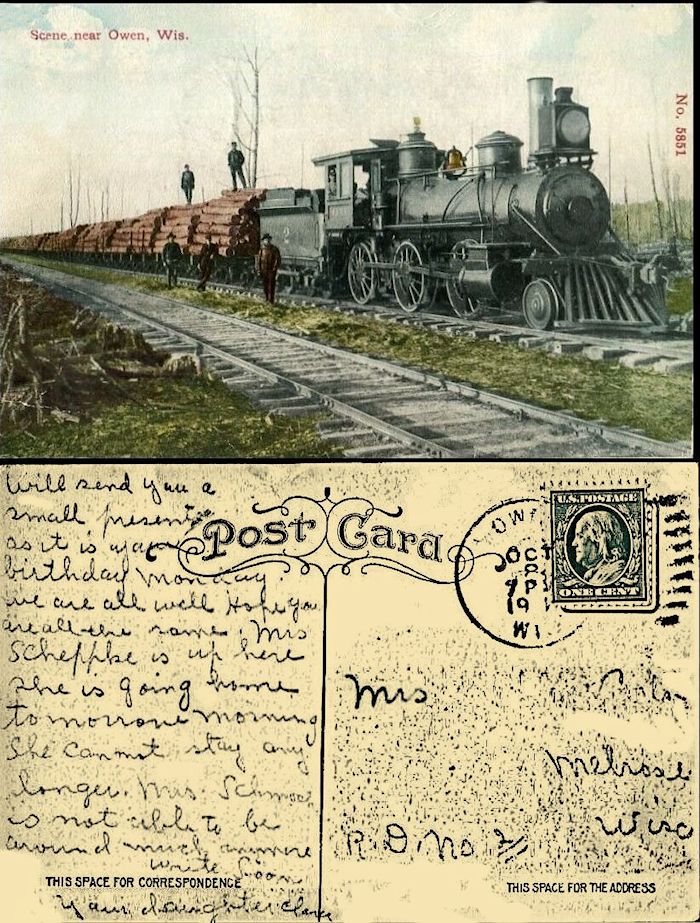 Scene near Owen, Wis.
No. 5851
2
Will send you a
small present
as it is your
birthday Monday.
we are all well Hope you
are all the same. Mrs
Scheppke is up here
she is going home
tomorrow morning
She cannot stay any
longer. Mrs. Schmoc
is not able to be
around much anymore
write soon
Your daughter Clara
THIS SPACE FOR CORRESPONDENCE
Post Card
OW
OCT
7
P
19
WI
U.S. POSTAGE
ONE CENT
Mrs
Melrose
Wisc
R.D. No 2
THIS SPACE FOR THE ADDRESS